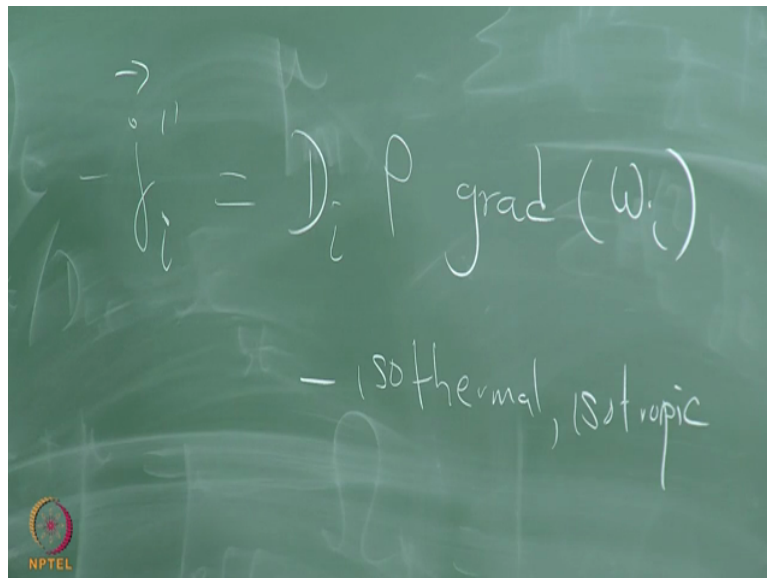 - j⃗ᵢ'' = Dᵢ ρ grad (ωᵢ)
- isothermal, isotropic
NPTEL